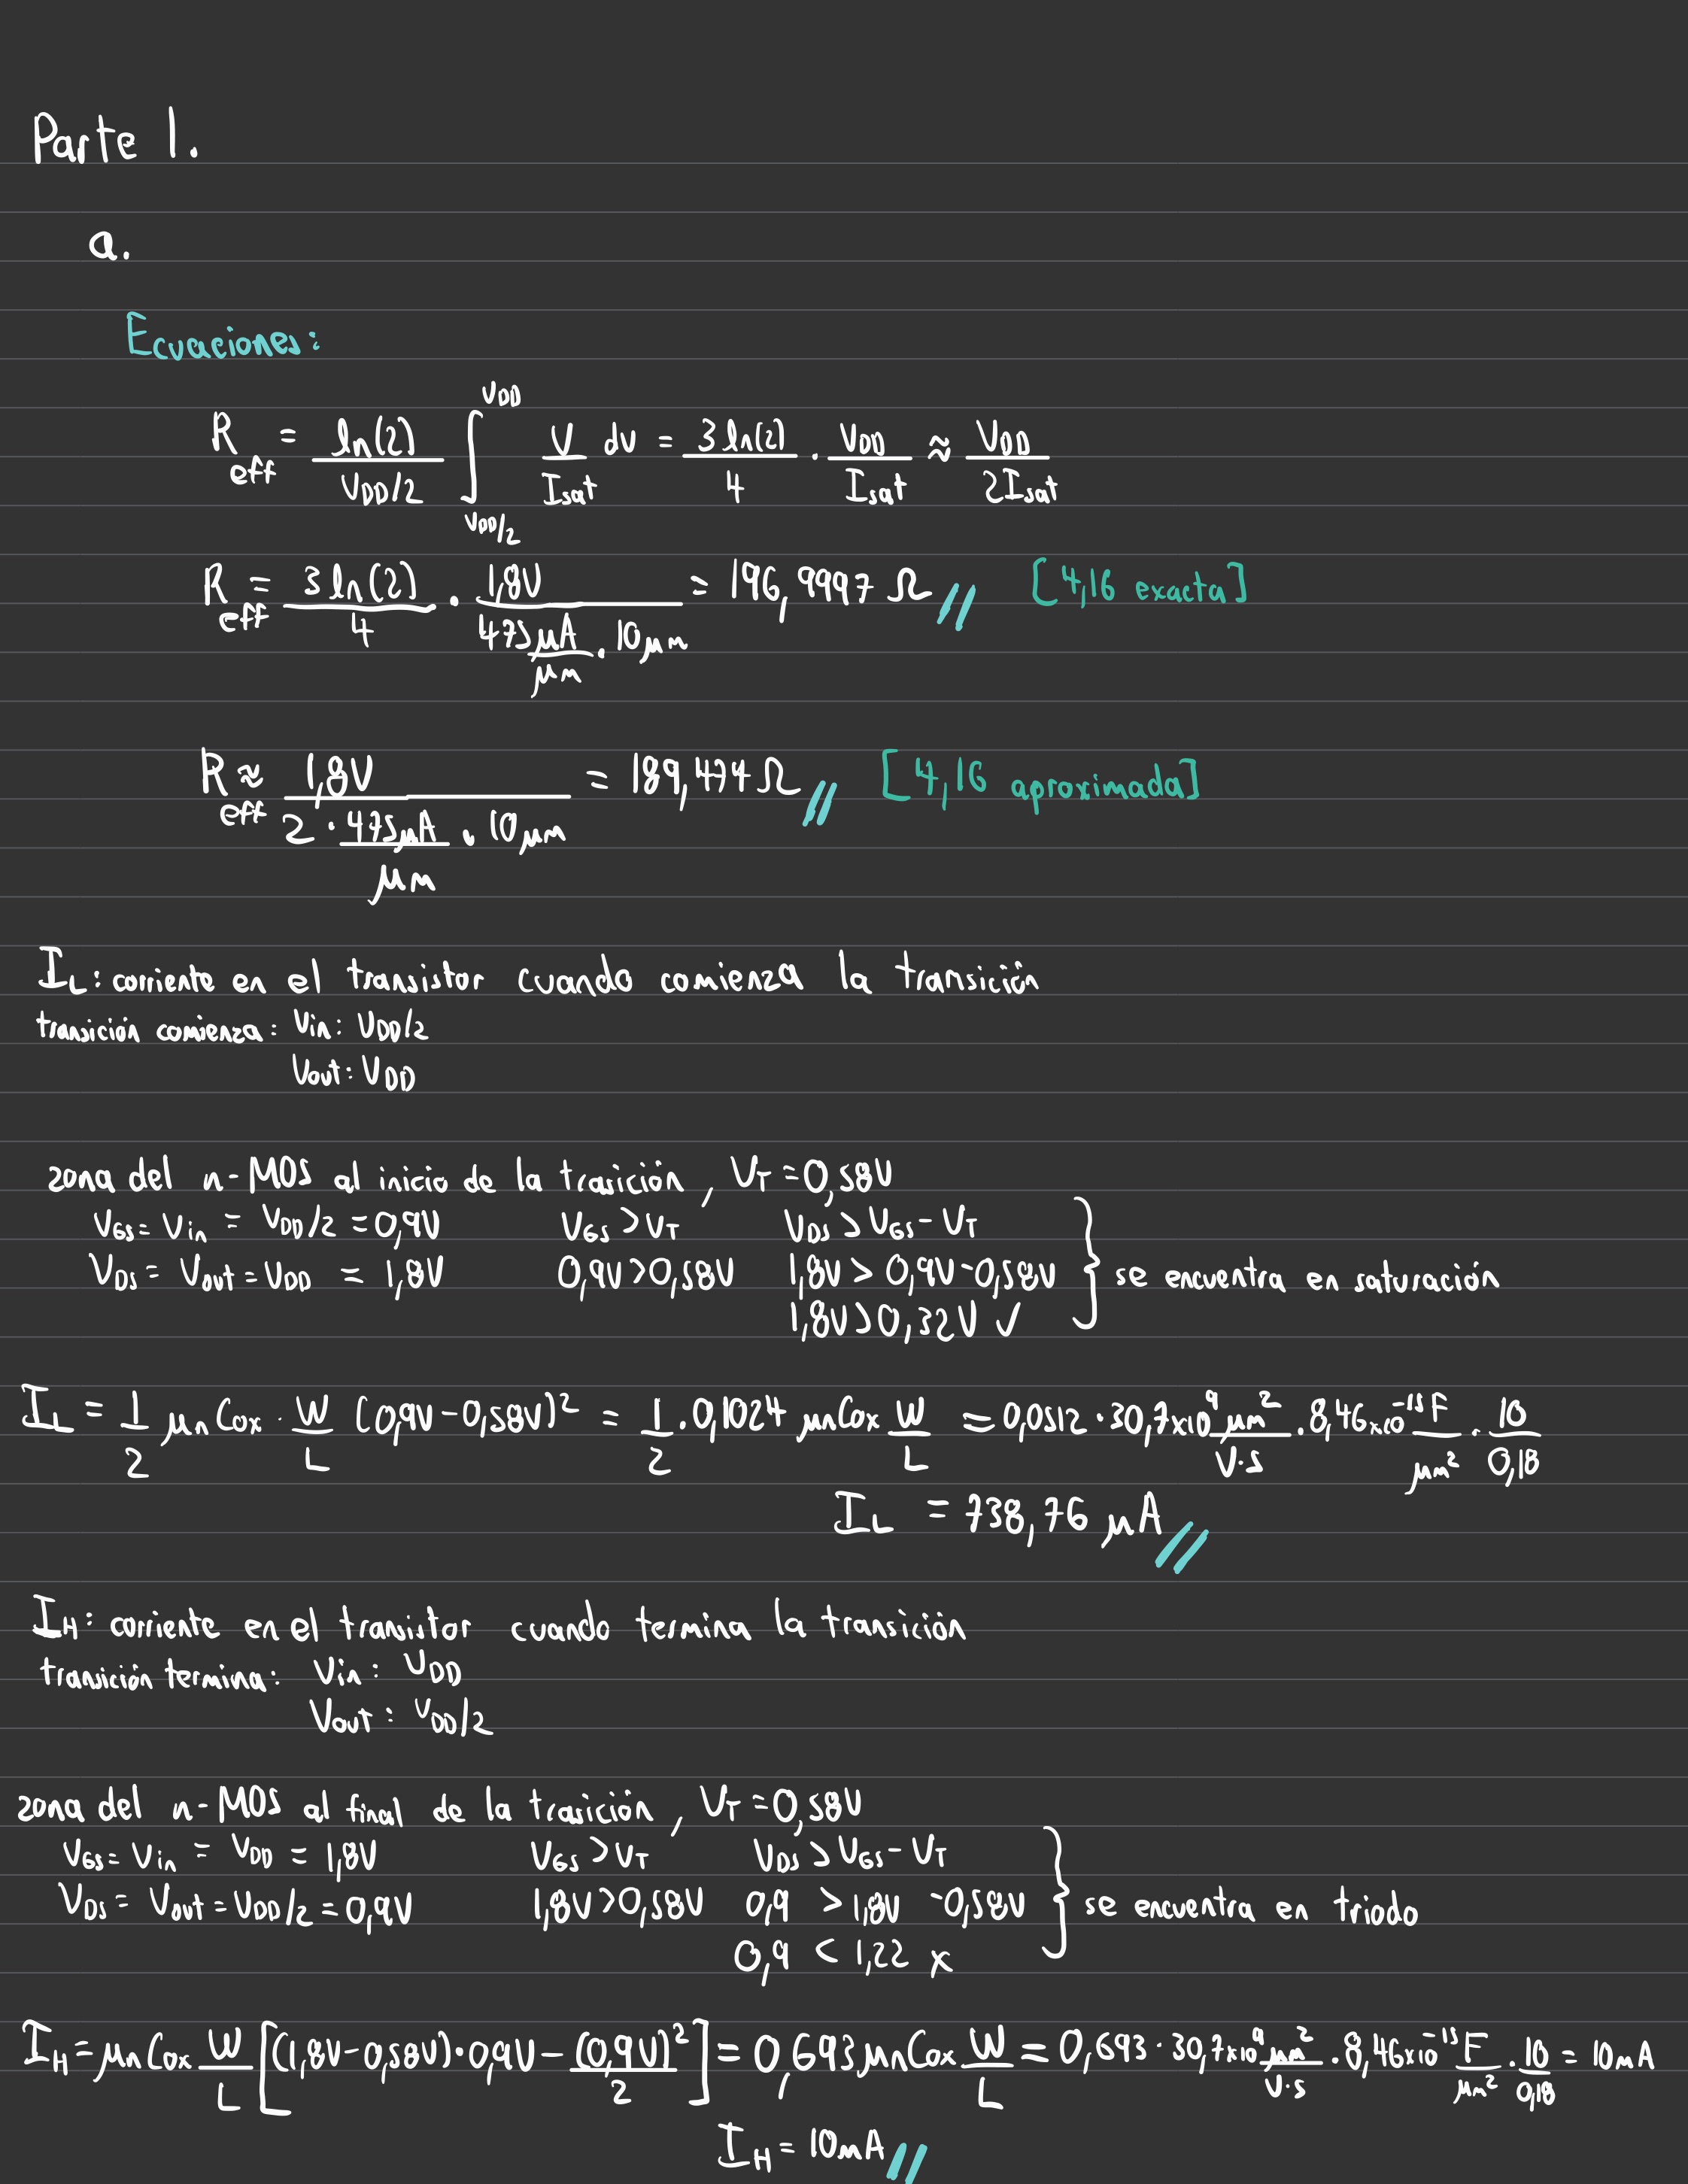 Parte 1.
a.
Ecuaciones:
R_eff = ln(2) / (V_DD/2) ∫_{V_DD/2}^{V_DD} V/I_sat dv = 3 ln(2)/4 · V_DD/I_sat ≈ V_DD/(2 I_sat)
R_eff = 3 ln(2)/4 · 1,8V / (475 μA/μm · 10 μm) = 196,9997 Ω // [4,16 exacta]
R_eff ≈ 1,8V / (2 · 475 μA/μm · 10 μm) = 189,474 Ω // [4,16 aproximada]
I_L: corriente en el transistor cuando comienza la transición
transición comienza: Vin: V_DD/2
Vout: V_DD
zona del n-MOS al inicio de la trasición, V_T = 0,58V
V_GS = Vin = V_DD/2 = 0,9V V_GS > V_T V_DS > V_GS - V_T
V_DS = Vout = V_DD = 1,8V 0,9V > 0,58V 1,8V > 0,9V - 0,58V } se encuentra en saturación
1,8V > 0,32V ✓
I_L = 1/2 μn Cox · W/L (0,9V - 0,58V)² = 1/2 · 0,1024 μn Cox W/L = 0,0512 · 30,7x10⁹ μm²/V·s · 8,46x10⁻¹⁵ F/μm² · 10/0,18
I_L = 738,76 μA //
I_H: corriente en el transistor cuando termina la transición
transición termina: Vin: V_DD
Vout: V_DD/2
zona del n-MOS al final de la trasición, V_T = 0,58V
V_GS = Vin = V_DD = 1,8V V_GS > V_T V_DS > V_GS - V_T
V_DS = Vout = V_DD/2 = 0,9V 1,8V > 0,58V 0,9 > 1,8V - 0,58V } se encuentra en triodo
0,9 < 1,22 x
I_H = μn Cox W/L [(1,8V - 0,58V) · 0,9V - (0,9V)²/2] = 0,693 μn Cox W/L = 0,693 · 30,7x10⁹ μm²/V·s · 8,46x10⁻¹⁵ F/μm² · 10/0,18 = 10mA
I_H = 10mA //